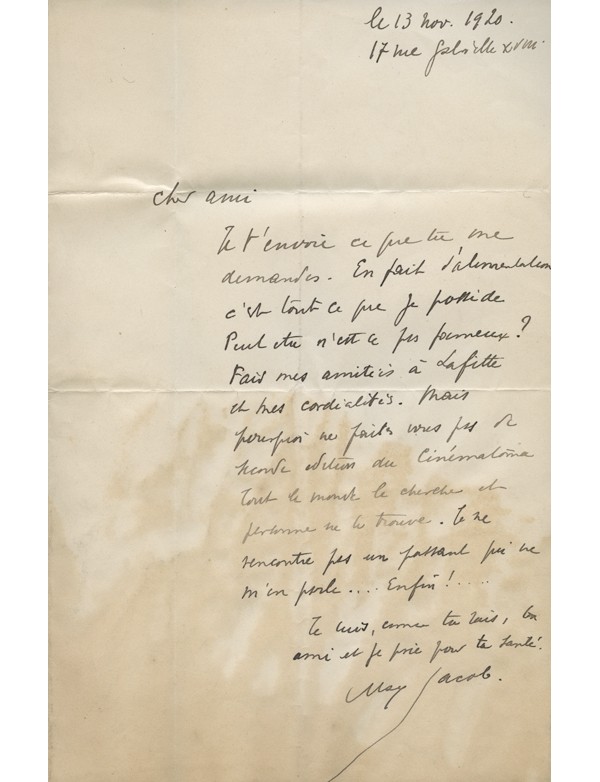 le 13 nov. 1920.
17 rue Gabrielle XVIII
cher ami
Je t'envoie ce que tu me
demandes. En fait d'alimentation
c'est tout ce que je possède
Peut etre n'est ce pas fameux ?
Fais mes amitiés à Lafitte
et mes cordialités. Mais
pourquoi ne faites vous pas de
seconde edition du Cinématoma
tout le monde le cherche et
personne ne le trouve. Je ne
rencontre pas un passant qui ne
m'en parle .... Enfin ! ....
Je suis, comme tu sais, ton
ami et je prie pour ta santé.
Max Jacob.